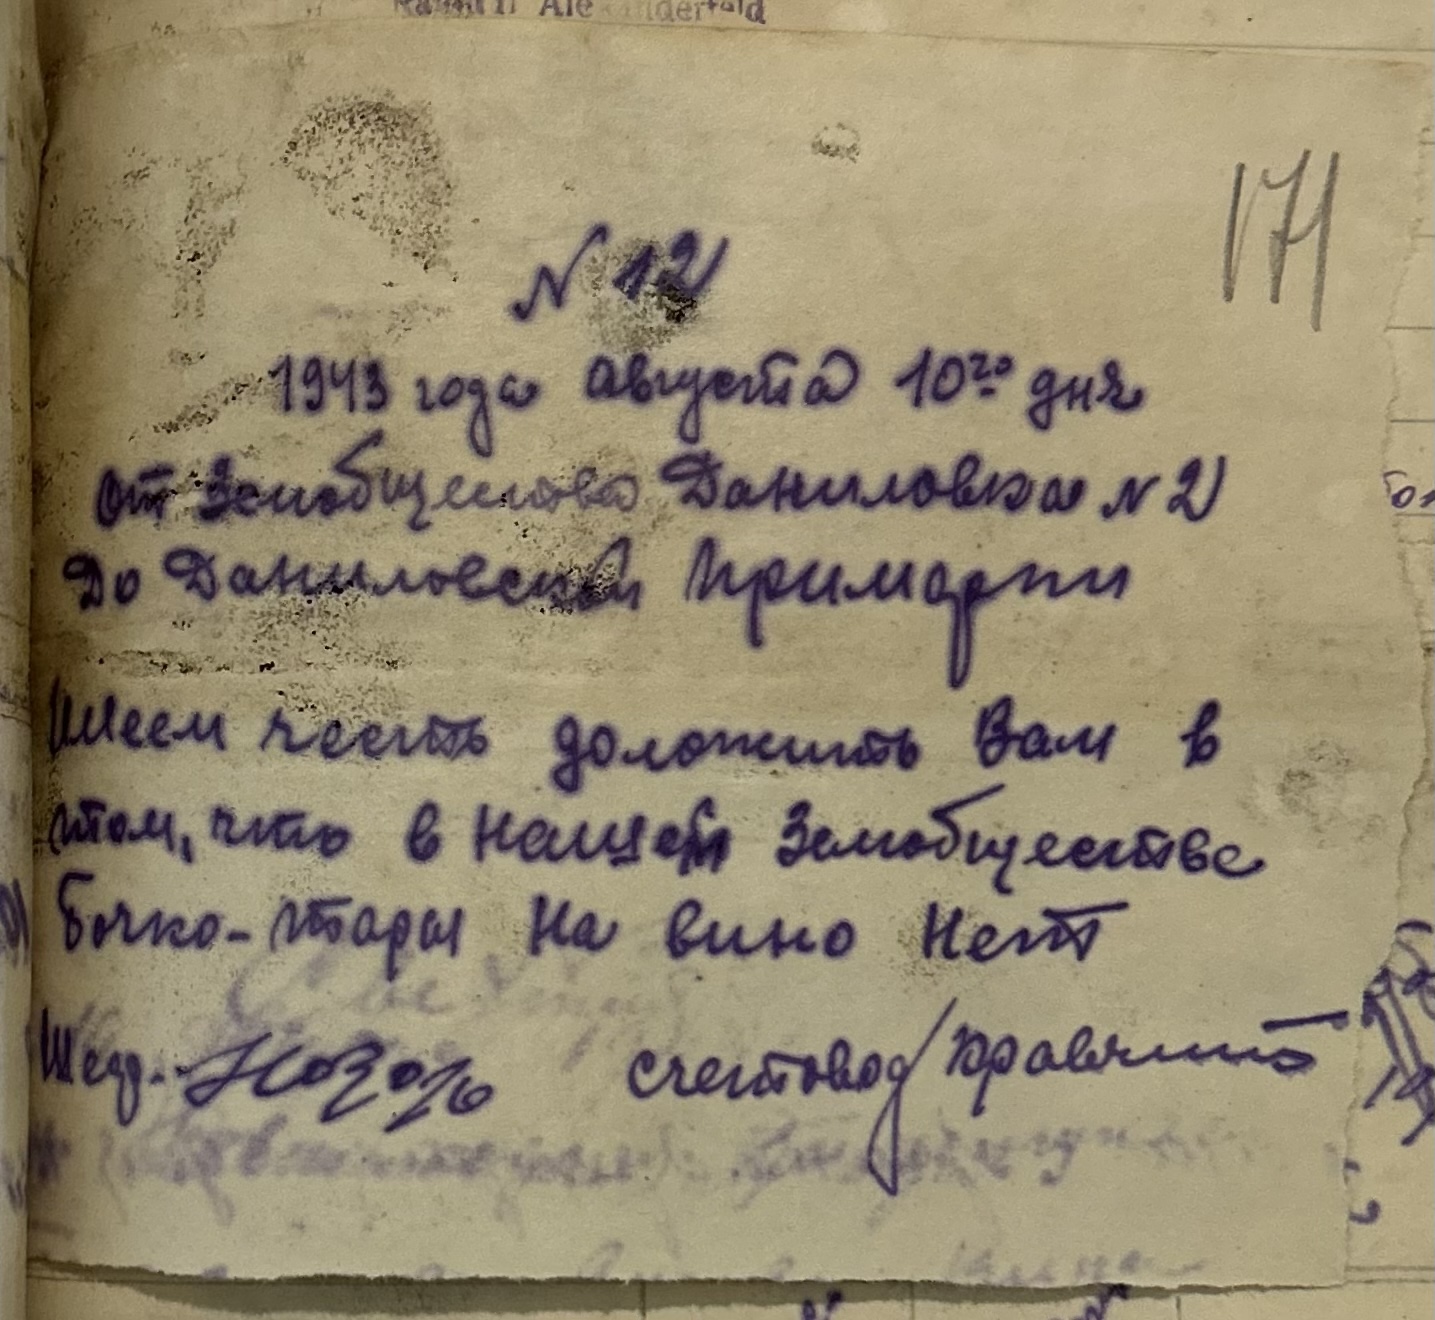 171
N 12
1943 года августа 10го дня
От Земобщества Даниловка N 2
До Даниловской Примарии
Имеем честь доложить Вам в
том, что в нашем Земобществе
бочко-тары на вино нет
Шеф. счетовод